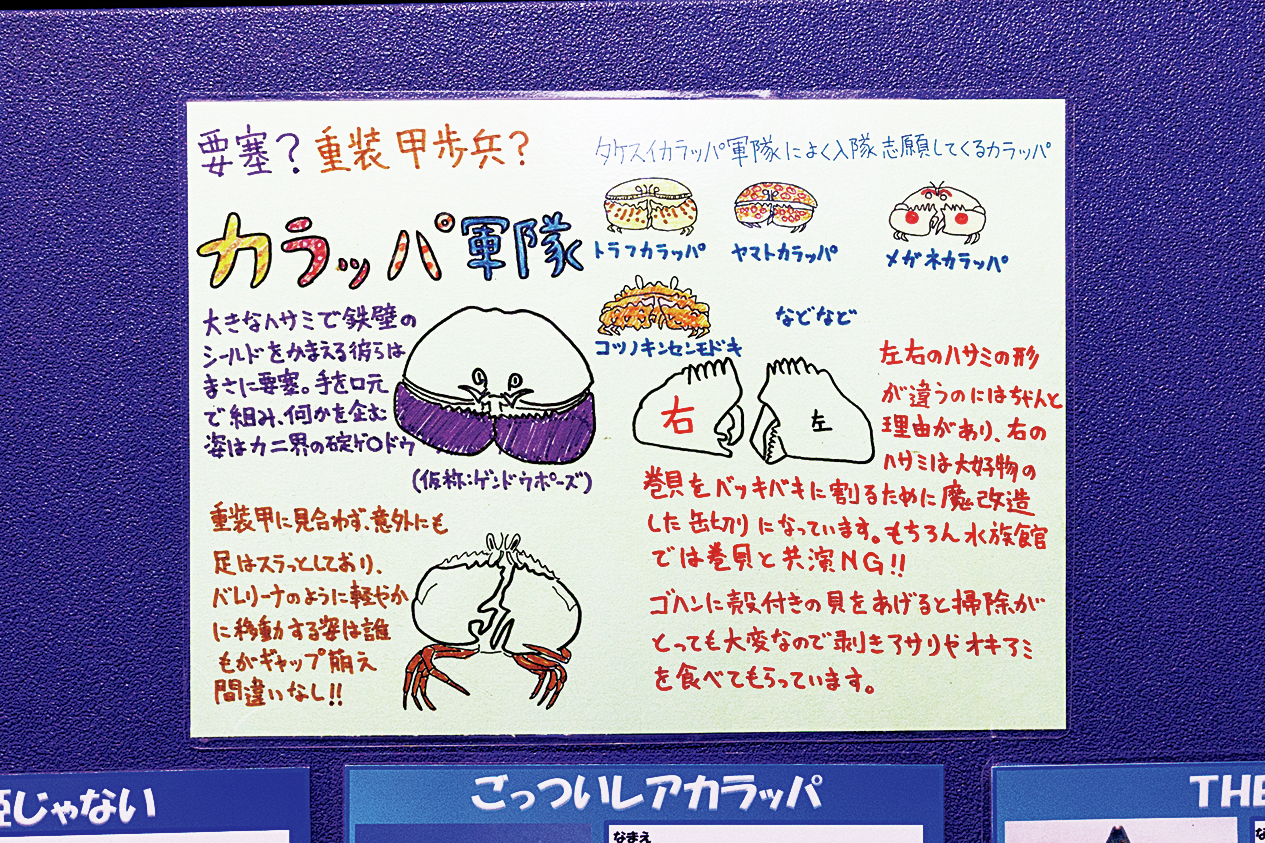 要塞?重装甲歩兵?
カラッパ軍隊
大きなハサミで鉄壁の
シールドをかまえる彼らは
まさに要塞。手を口元
で組み、何かを企む
姿はカニ界の碇ゲ○ドウ
(仮称:ゲンドウポーズ)
重装甲に見合わず、意外にも
足はスラっとしており、
バレリーナのように軽やか
に移動する姿は誰
もがギャップ萌え
間違いなし!!
タケスイカラッパ軍隊によく入隊志願してくるカラッパ
トラフカラッパ
ヤマトカラッパ
メガネカラッパ
コツノキンセンモドキ
などなど
右
左
左右のハサミの形
が違うのにはちゃんと
理由があり、右の
ハサミは大好物の
巻貝をバッキバキに割るために魔改造
した缶切りになっています。もちろん水族館
では巻貝と共演NG!!
ゴハンに殻付きの貝をあげると掃除が
とっても大変なので剥きアサリやオキアミ
を食べてもらっています。
じゃない
ごっついレアカラッパ
なまえ
THE
な